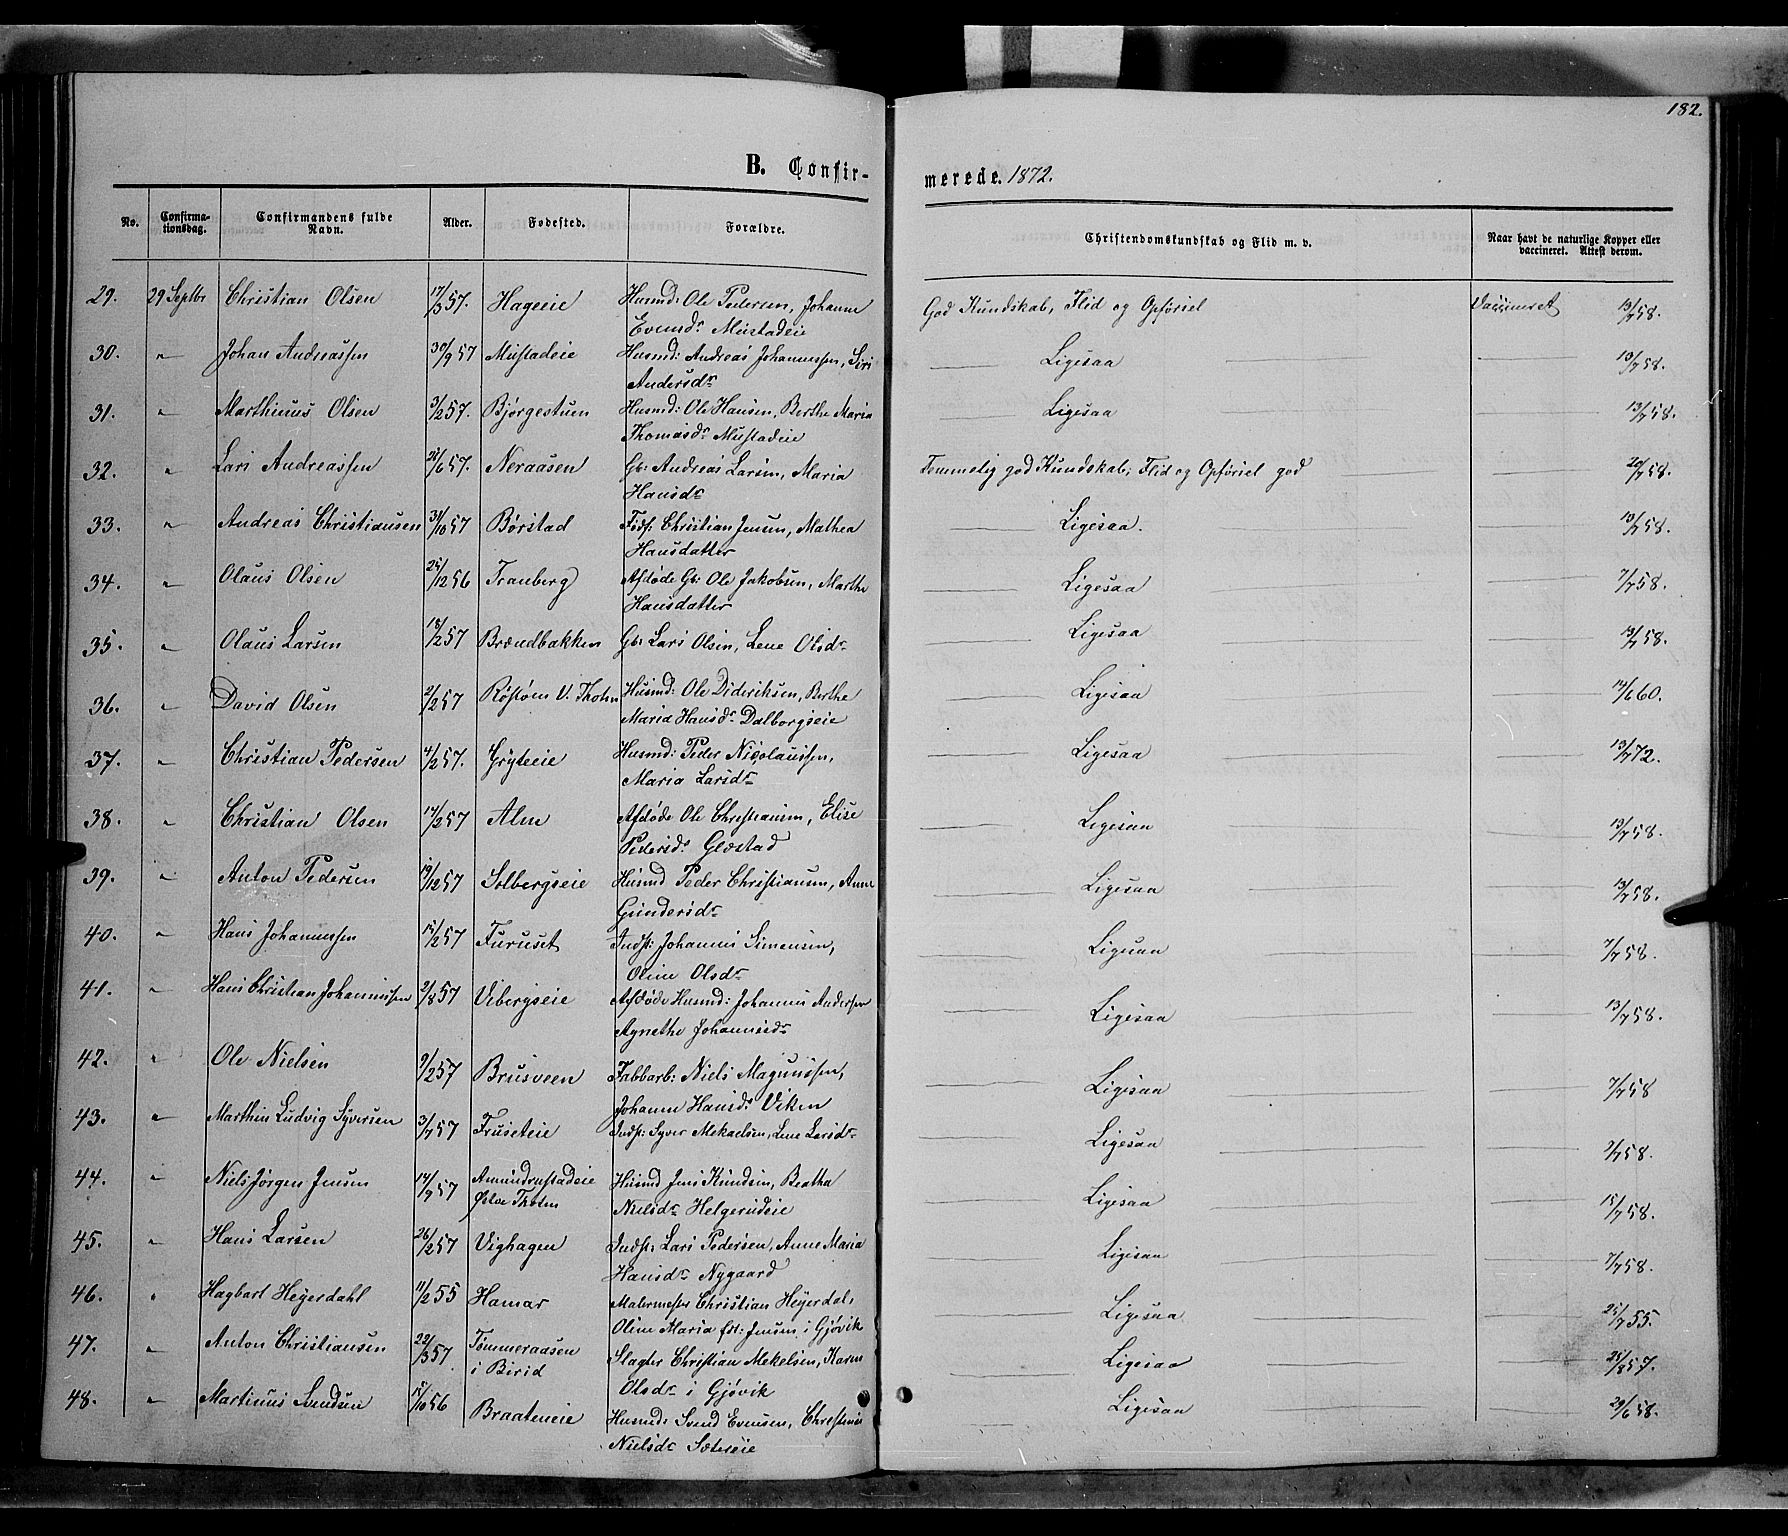 182.
B. Confir-
merede. 1872.
No. Confirma-tionsdag. Confirmandens fulde Navn. Alder. Fødested. Forældre. Christendomskundskab og Flid m. v. Naar havt de naturlige Kopper eller vaccineret. Attest derom.
29. 29 Septbr Christian Olsen 17/3 57. Hageeie Husmd: Ole Pedersen, Johanne God Kundskab, Flid og Opførsel Vaccineret 13/7 58.
Evensdr Mustadeie
30. " Johan Andreassen 30/9 57 Mustadeie Husmd: Andreas Johannessen, Siri Ligesaa 13/7 58.
Andersdr
31. " Marthinus Olsen 3/2 57. Bjørgestuen Husmd: Ole Hansen, Berthe Maria Ligesaa 13/7 58.
Thomasdr Mustadeie
32. " Lars Andreassen /6 57. Neraasen Gb: Andreas Larsen, Maria Temmelig god Kundskab, Flid og Opførsel god 20/7 58.
Hansdr
33. " Andreas Christiansen 31/10 57 Børstad Fødf: Christian Jensen, Mathea Ligesaa. 13/7 58.
Hansdatter
34. " Olaus Olsen 25/12 56 Tranberg Afdøde Gb: Ole Jakobsen, Marthe Ligesaa 7/7 58.
Hansdatter
35. " Olaus Larsen 18/2 57 Brændbakken Gb: Lars Olsen, Lene Olsdr Ligesaa 13/7 58.
36. " David Olsen 2/2 57 V. Thoten Husmd: Ole Dideriksen, Berthe Ligesaa 12/6 60.
Maria Hansdr Dalborgseie
37. " Christian Pedersen 4/2 57. Gryteeie Husmd: Peder Nicolaussen, Ligesaa 13/7 72.
Maria Larsdr
38. " Christian Olsen 14/2 57 Alm Afdøde Ole Christiansen, Elise Ligesaa 13/7 58.
Pedersdr Glæstad
39. " Anton Pedersen 19/12 57 Solbergseie Husmd Peder Christiansen, Anne Ligesaa 13/7 58.
Gundersdr
40. " Hans Johannessen 15/2 57 Furuset Indst: Johannes Simensen, Ligesaa 7/7 58.
Oline Olsdr
41. " Hans Christian Johannessen 2/8 57 Vibergseie Afdøde Husmd: Johannes Andersen Ligesaa 13/7 58.
Agnethe Johannesdr
42. " Ole Nielsen 9/2 57 Brusveen Fabbarb: Niels Magnussen, Ligesaa 7/7 58
Johanne Hansdr Viken
43. " Marthin Ludvig Syversen 3/7 57 Fruseteie Indst: Syver Mekaelsen, Lene Larsdr Ligesaa 2/7 58.
44. " Niels Jørgen Jensen 14/9 57 Amundrustadeie Husmd Jens Knudsen, Beatha Ligesaa 15/7 58.
Østre Thoten Nielsdr Helgerudeie
45. " Hans Larsen 26/2 57 Vighagen Indst: Lars Pedersen, Anne Maria Ligesaa 7/7 58.
Hansdr Nygaard
46. " Hagbart Heyerdahl 11/2 55 Hamar Malermester Christian Heyerdal, Ligesaa 25/7 55.
Oline Maria fdt: Jensen i Gjøvik
47. " Anton Christiansen 22/3 57 Tømmeraasen Slagter Christian Mekelsen, Karen Ligesaa 25/8 57.
i Birid Olsdr i Gjøvik
48. " Martinus Svendsen 15/10 56 Braateneie Husmd: Svend Evensen, Christine Ligesaa 29/6 58.
Nielsdr Sætereie